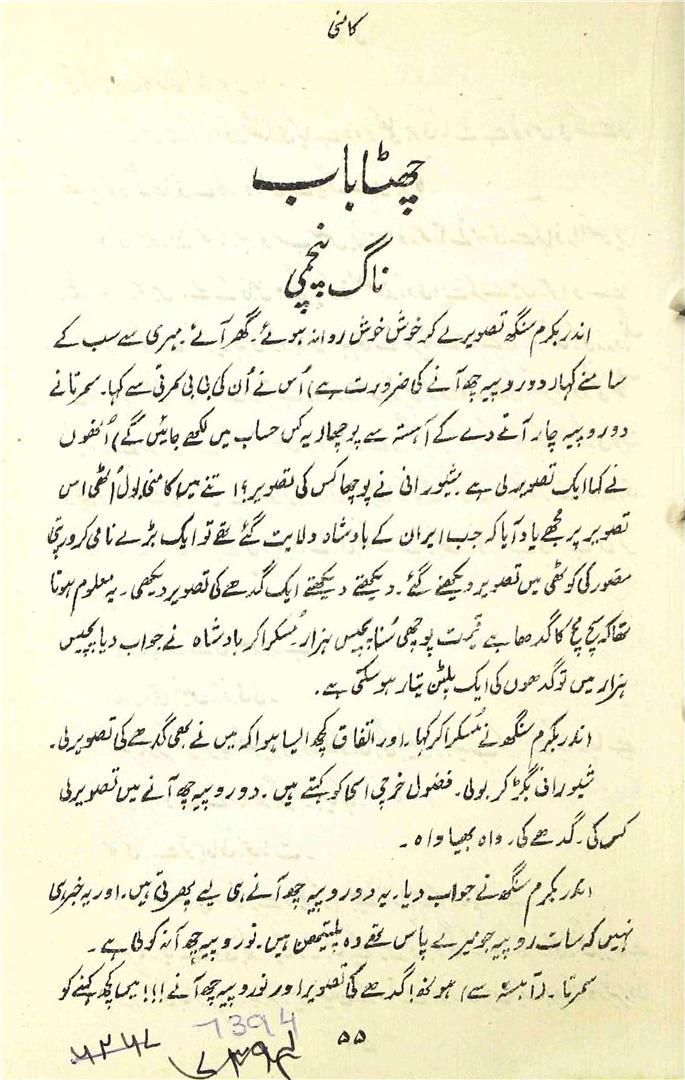 کامنی
چھٹا باب
ناگ پنچمی
اندر بکرم سنگھ تصویر لے کر خوش خوش روانہ ہوئے۔ گھر آئے۔ مہری سے سب کے
سامنے کہا۔ دو روپیہ چھ آنے کی ضرورت ہے) اُس نے اُن کی بی بی سمرتی سے کہا۔ سمرتا نے
دو روپیہ چار آنے دے کے آہستہ سے پوچھا (یہ کس حساب میں لکھے جائیں گے) اُنھوں
نے کہا ایک تصویر لی ہے۔ شیورانی نے پوچھا کس کی تصویر ؟ اتنے میں کامنی بول اُٹھی اس
تصویر پر مجھے یاد آیا کہ جب ایران کے بادشاہ ولایت گئے تھے تو ایک بڑے نامی کروڑپتی
مصّور کی کوٹھی میں تصویر دیکھنے گئے۔ دیکھتے دیکھتے ایک گدھے کی تصویر دیکھی۔ یہ معلوم ہوتا
تھا کہ سچ مچ کا گدھا ہے قیمت پوچھی سُنا پچیس ہزار۔ مُسکرا کر بادشاہ نے جواب دیا پچیس
ہزار میں تو گدھوں کی ایک پلٹن تیار ہو سکتی ہے۔
اندر بکرم سنگھ نے مُسکرا کر کہا۔ اور اتفاق کچھ ایسا ہوا کہ میں نے بھی گدھے کی تصویر لی۔
شیورانی بگڑ کر بولی۔ فضول خرچی اسی کو کہتے ہیں۔ دو روپیہ چھ آنے میں تصویر لی
کس کی۔ گدھے کی۔ واہ بھیا واہ۔
اندر بکرم سنگھ نے جواب دیا۔ یہ دو روپیہ چھ آنے ہی لیے پھرتی ہیں۔ اور یہ خبر ہی
نہیں کہ سات روپیہ جو میرے پاس تھے وہ پلیتھن ہیں۔ نو روپیہ چھ آنہ کو لی ہے۔
سمرتا۔ (آہستہ سے) ہو لغو! گدھے کی تصویر اور نو روپیہ چھ آنے !!! میں کچھ کہنے کو
۵۵
7394
۷۳۹۴